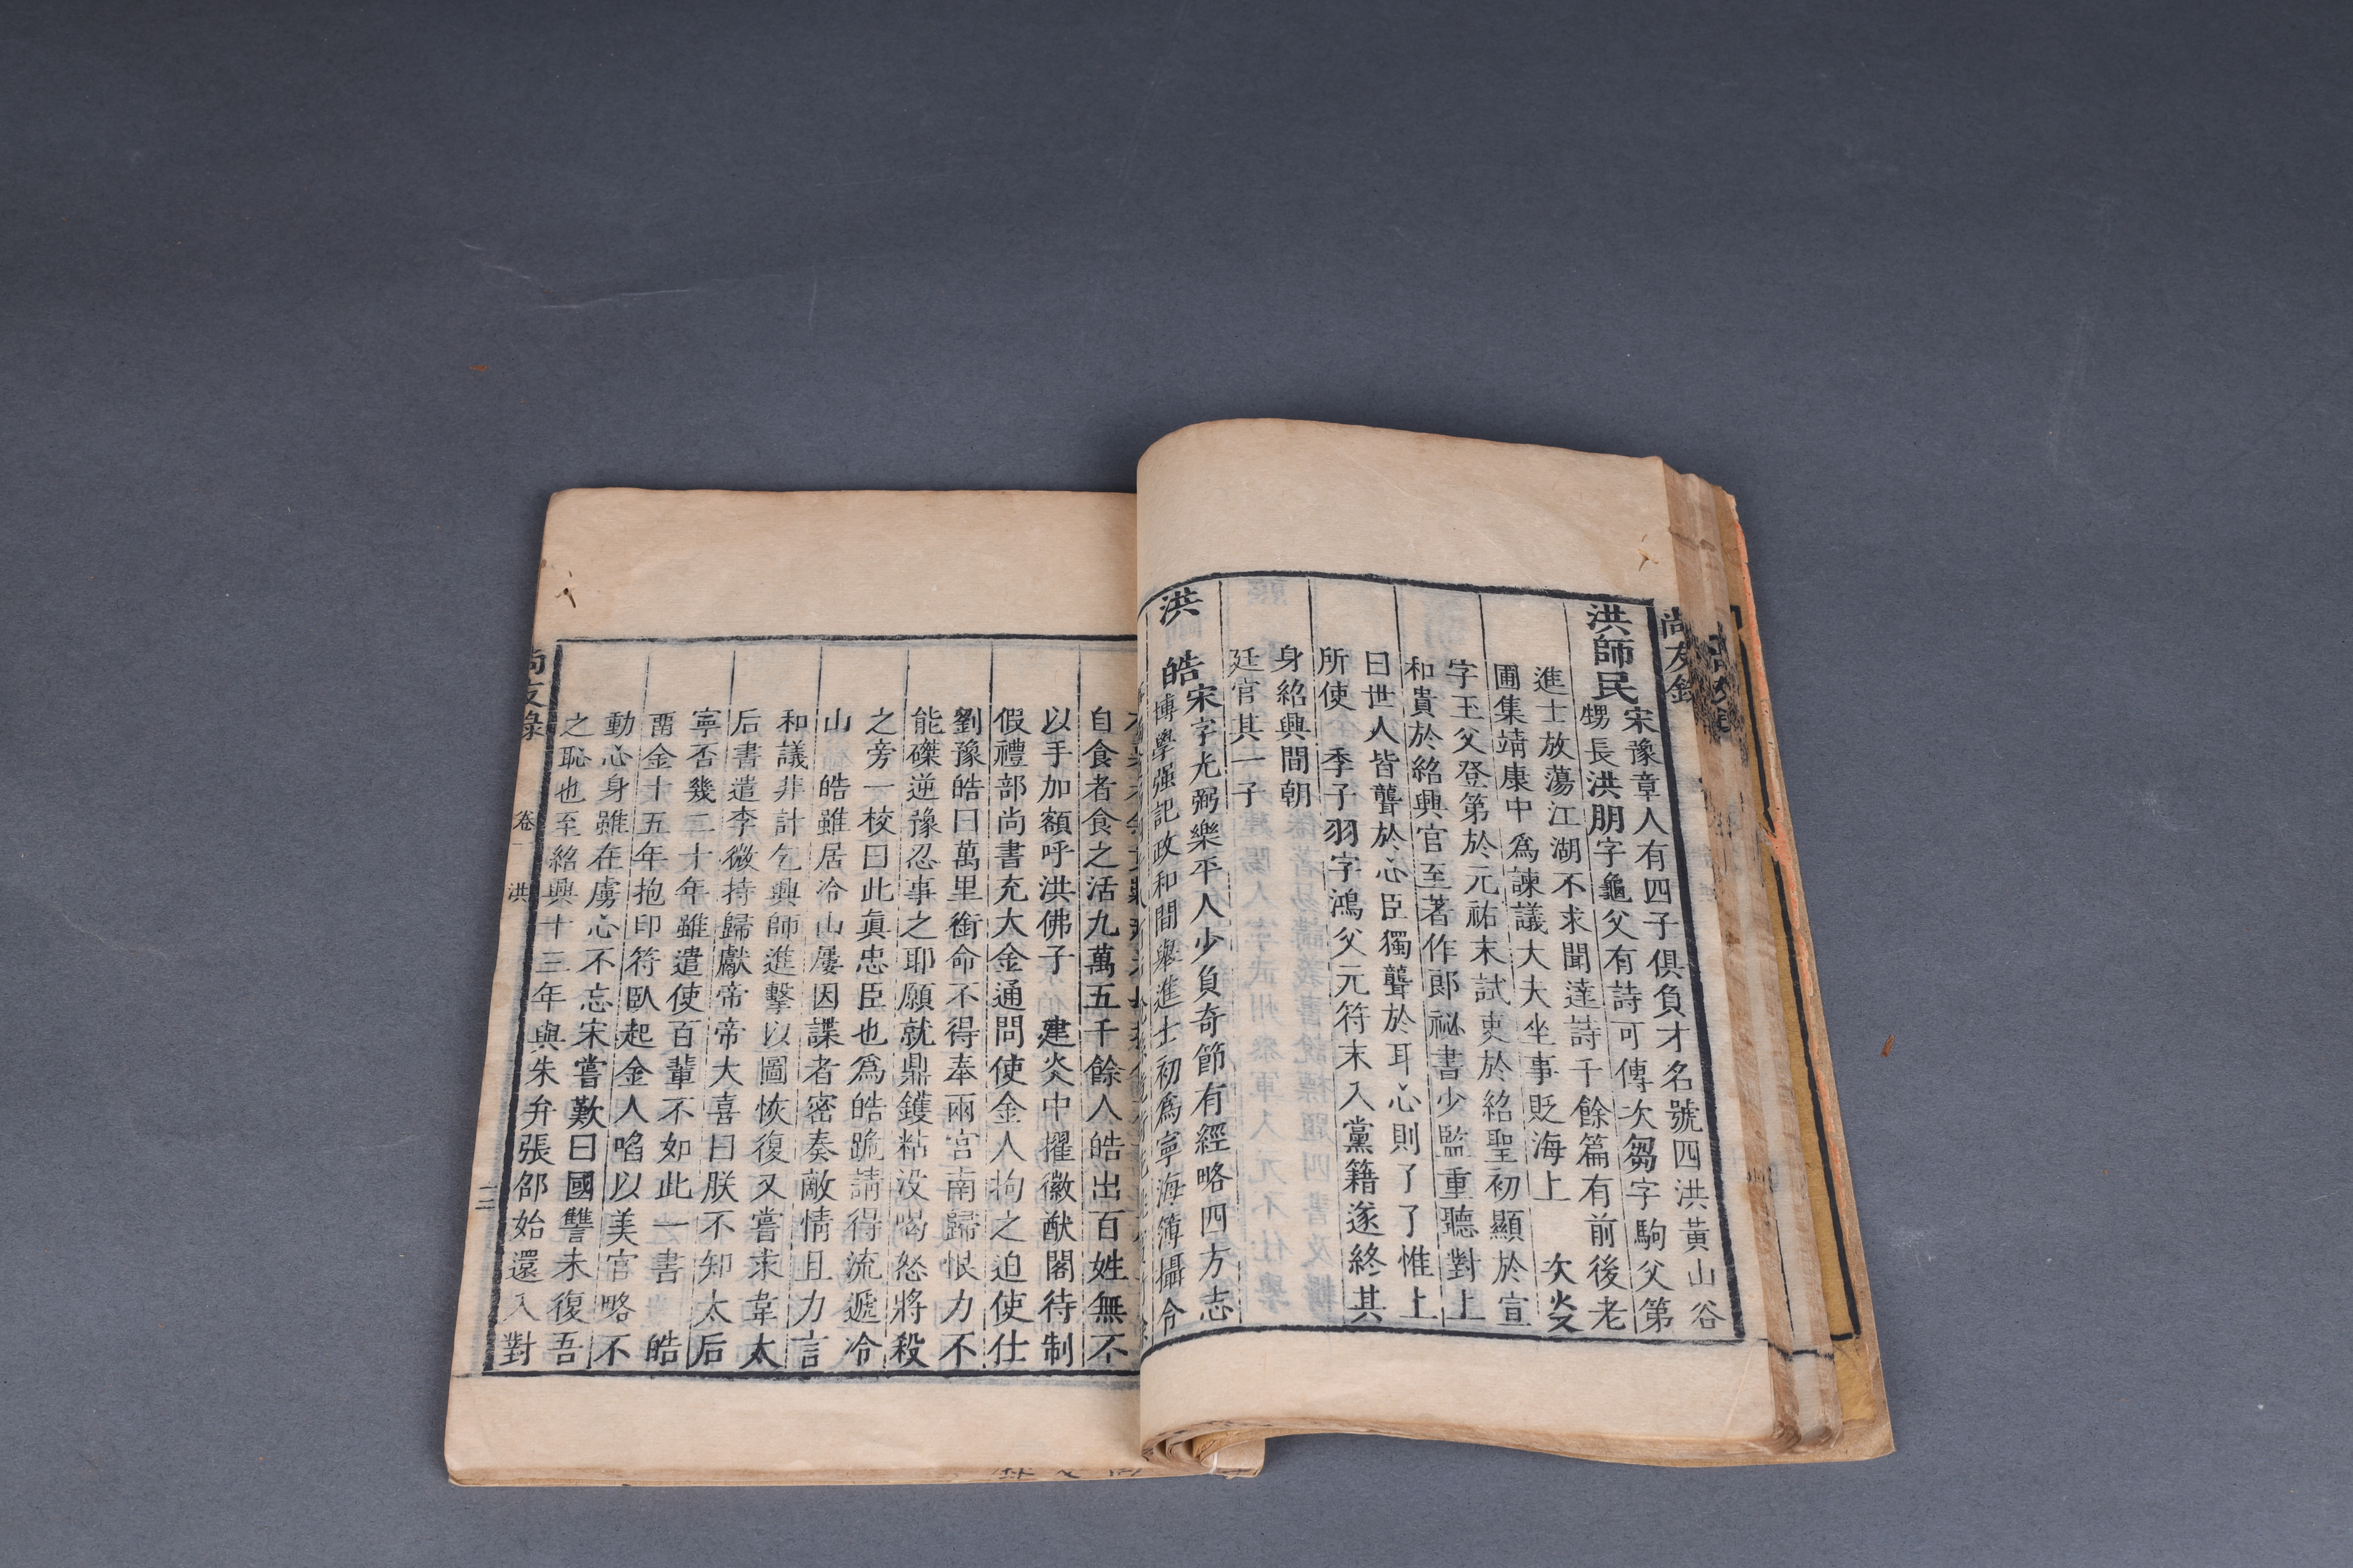 尚友錄
洪師民
宋豫章人有四子俱負才名號四洪黃山谷
甥長洪朋字龜父有詩可傳次芻字駒父第
進士放蕩江湖不求聞達詩千餘篇有前後老
圃集靖康中為諫議大夫坐事貶海上　次炎
字玉父登第於元祐末試吏於紹聖初顯於宣
和貴於紹興官至著作郎祕書少監重聽對上
曰世人皆聾於心臣獨聾於耳心則了了惟上
所使　季子羽字鴻父元符末入黨籍遂終其
身紹興間朝
廷官其一子
洪　皓
宋字光弼樂平人少負奇節有經略四方志
博學强記政和間舉進士初為寧海簿攝令
自食者食之活九萬五千餘人皓出百姓無不
以手加額呼洪佛子　建炎中擢徽猷閣待制
假禮部尚書充大金通問使金人拘之迫使仕
劉豫皓曰萬里銜命不得奉兩宮南歸恨力不
能磔逆豫忍事之耶願就鼎鑊粘没喝怒將殺
之旁一校曰此眞忠臣也為皓跪請得流遞冷
山　皓雖居冷山屢因諜者密奏敵情且力言
和議非計乞興師進擊以圖恢復又嘗求韋太
后書遣李微持歸獻帝帝大喜曰朕不知太后
寧否幾二十年雖遣使百輩不如此一書　皓
畱金十五年抱印符臥起金人啗以美官略不
動心身雖在虜心不忘宋嘗歎曰國讐未復吾
之恥也至紹興十三年與朱弁張邵始還入對
尚友錄
卷一
洪
二